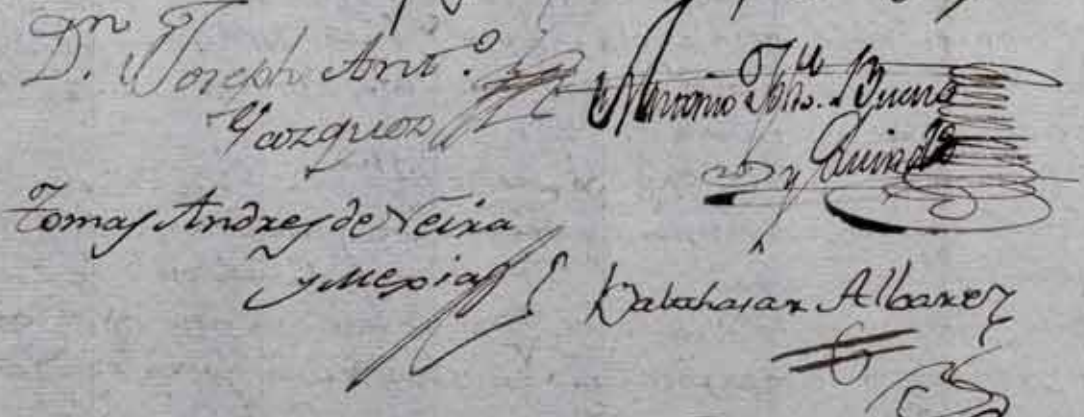 Dn. Joseph Antº.
Vazquez
Antonio Ygnº. Bueno
y Guinda
Tomas Andres de Neira
y Mexia
Balthasar Albarez